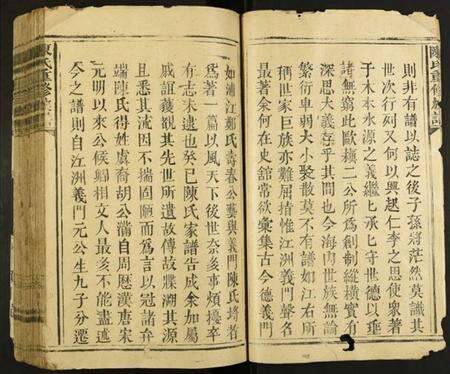 陳氏重修族譜
則非有譜以誌之後子孫將茫然莫識其
世次行列又何以興起仁孝之思使衆著
于木本水源之義繼匕承匕守世德以垂
諸無窮此歐蘓二公所爲創制縱橫實有
深思大義存乎其間也今海内世族無論
繁衍卑弱大小聚散莫不有譜如江右所
稱世家巨族亦難屈指惟江洲義門聲名
最著余何在史舘常欲彙集古今德義門
如浦江鄭氏壽春公藝與義門陳氏將者
爲著一篇以風天下後世奈多事煩擾卒
有志未逮也癸巳陳氏家譜告成余如屬
戚誼獲觀其先世所遺故傳故牒溯其源
且悉其流因不揣固陋而爲言以冠諸弁
端陳氏得姓虞裔胡公滿自周歷漢唐宋
元明以來公候卿相文人最多不能盡述
今之譜則自江洲義門元公生九子分遷
陳氏重修族譜